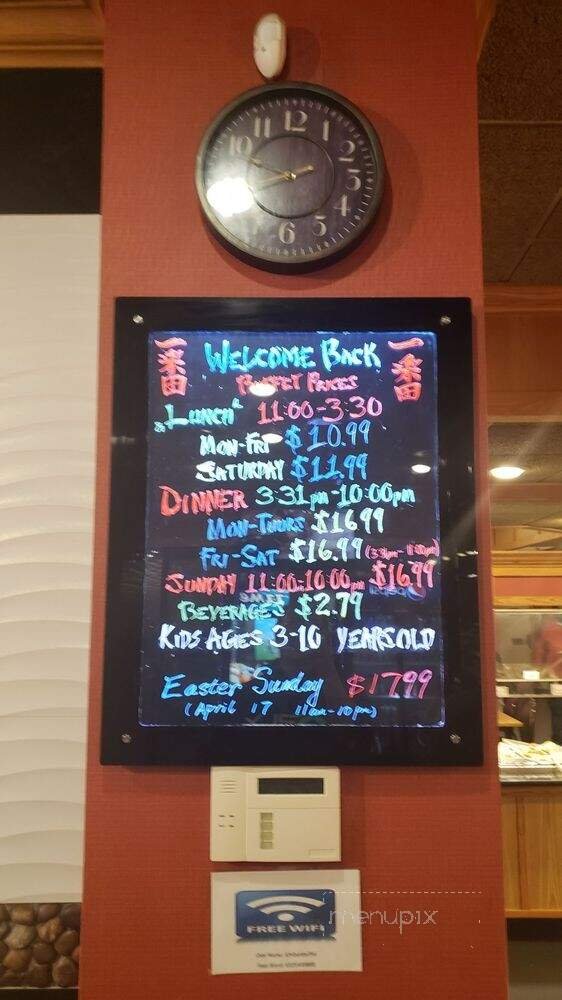 12 1 2 3 4 5 6 10 11
一楽田 WELCOME BACK 一楽田
BUFFET PRICES
„LUNCH" 11:00-3:30
MON-FRI $10.99
SATURDAY $11.99
DINNER 3:31pm-10:00pm
MON-THURS $16.99
FRI-SAT $16.99 (3:31pm-11:00pm)
SUNDAY 11:00am-10:00pm $16.99
BEVERAGES $2.79
KIDS AGES 3-10 YEARS OLD
Easter Sunday $17.99
(April 17 11am-10pm)
FREE WIFI
menupix